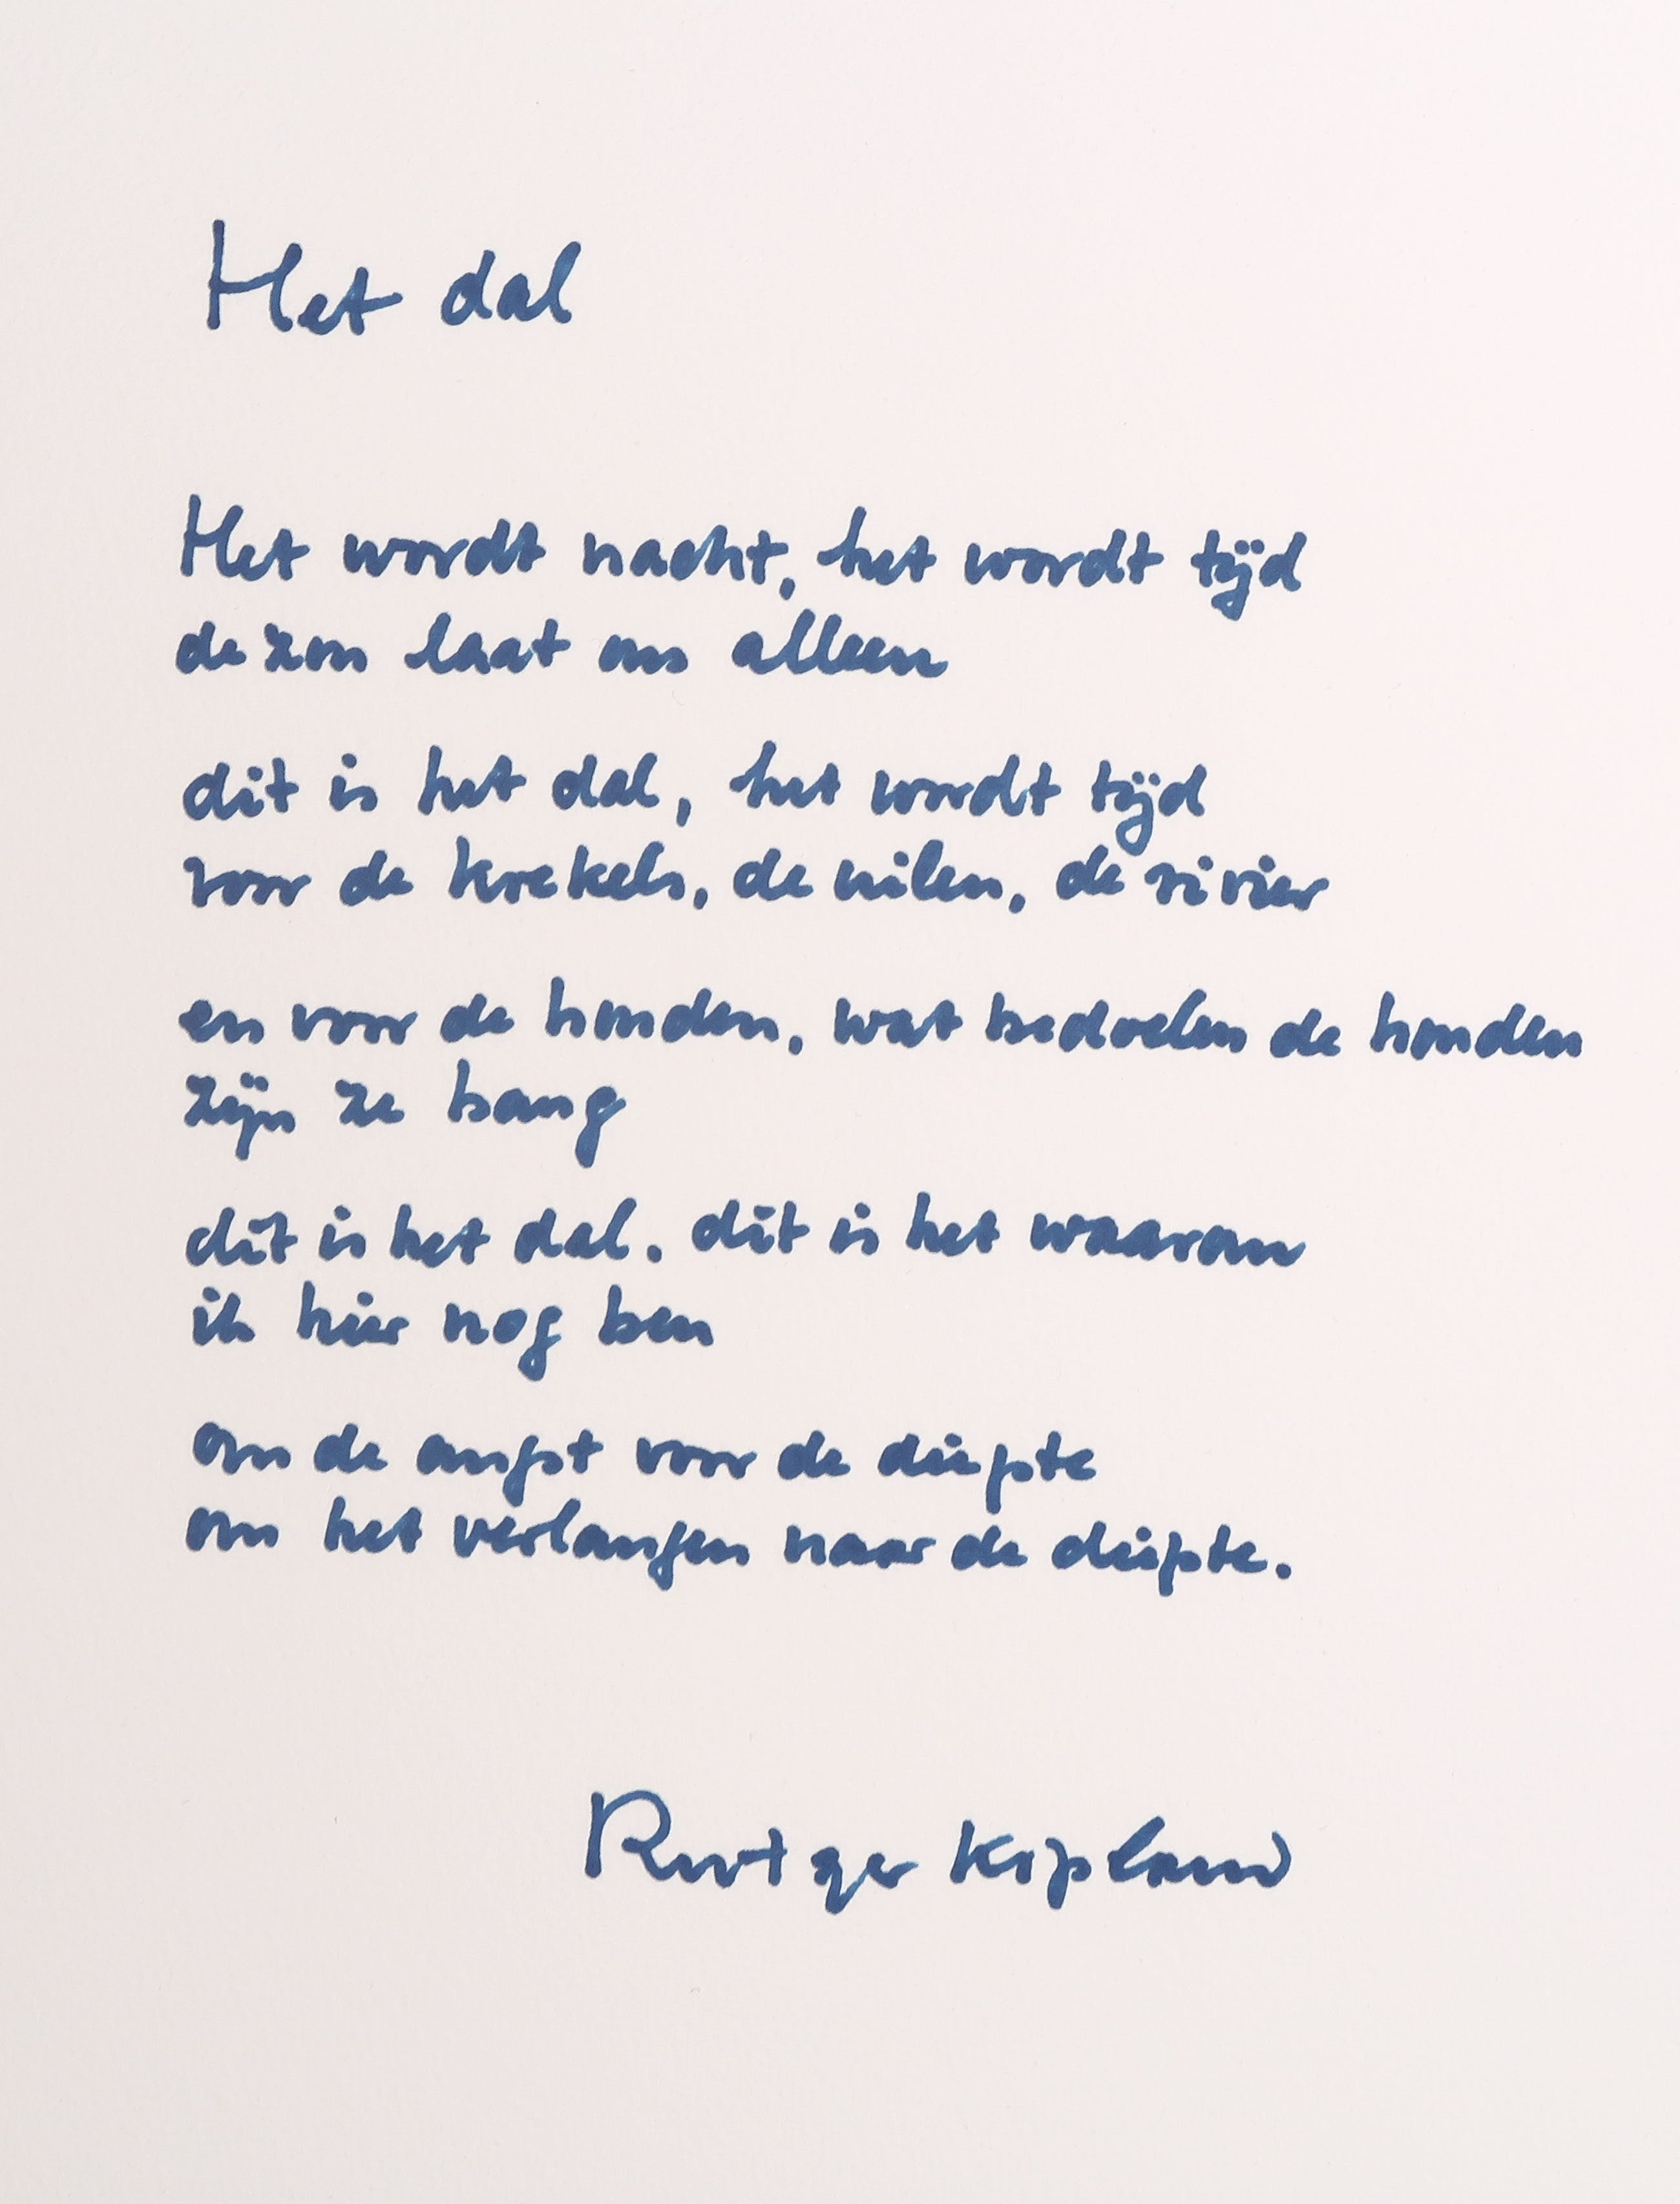 Het dal
Het wordt nacht, het wordt tijd
de zon laat ons alleen
dit is het dal, het wordt tijd
voor de krekels, de uilen, de rivier
en voor de honden, wat bedoelen de honden
zijn ze bang
dit is het dal. dit is het waarom
ik hier nog ben
om de angst voor de diepte
om het verlangen naar de diepte.
Rutger Kopland